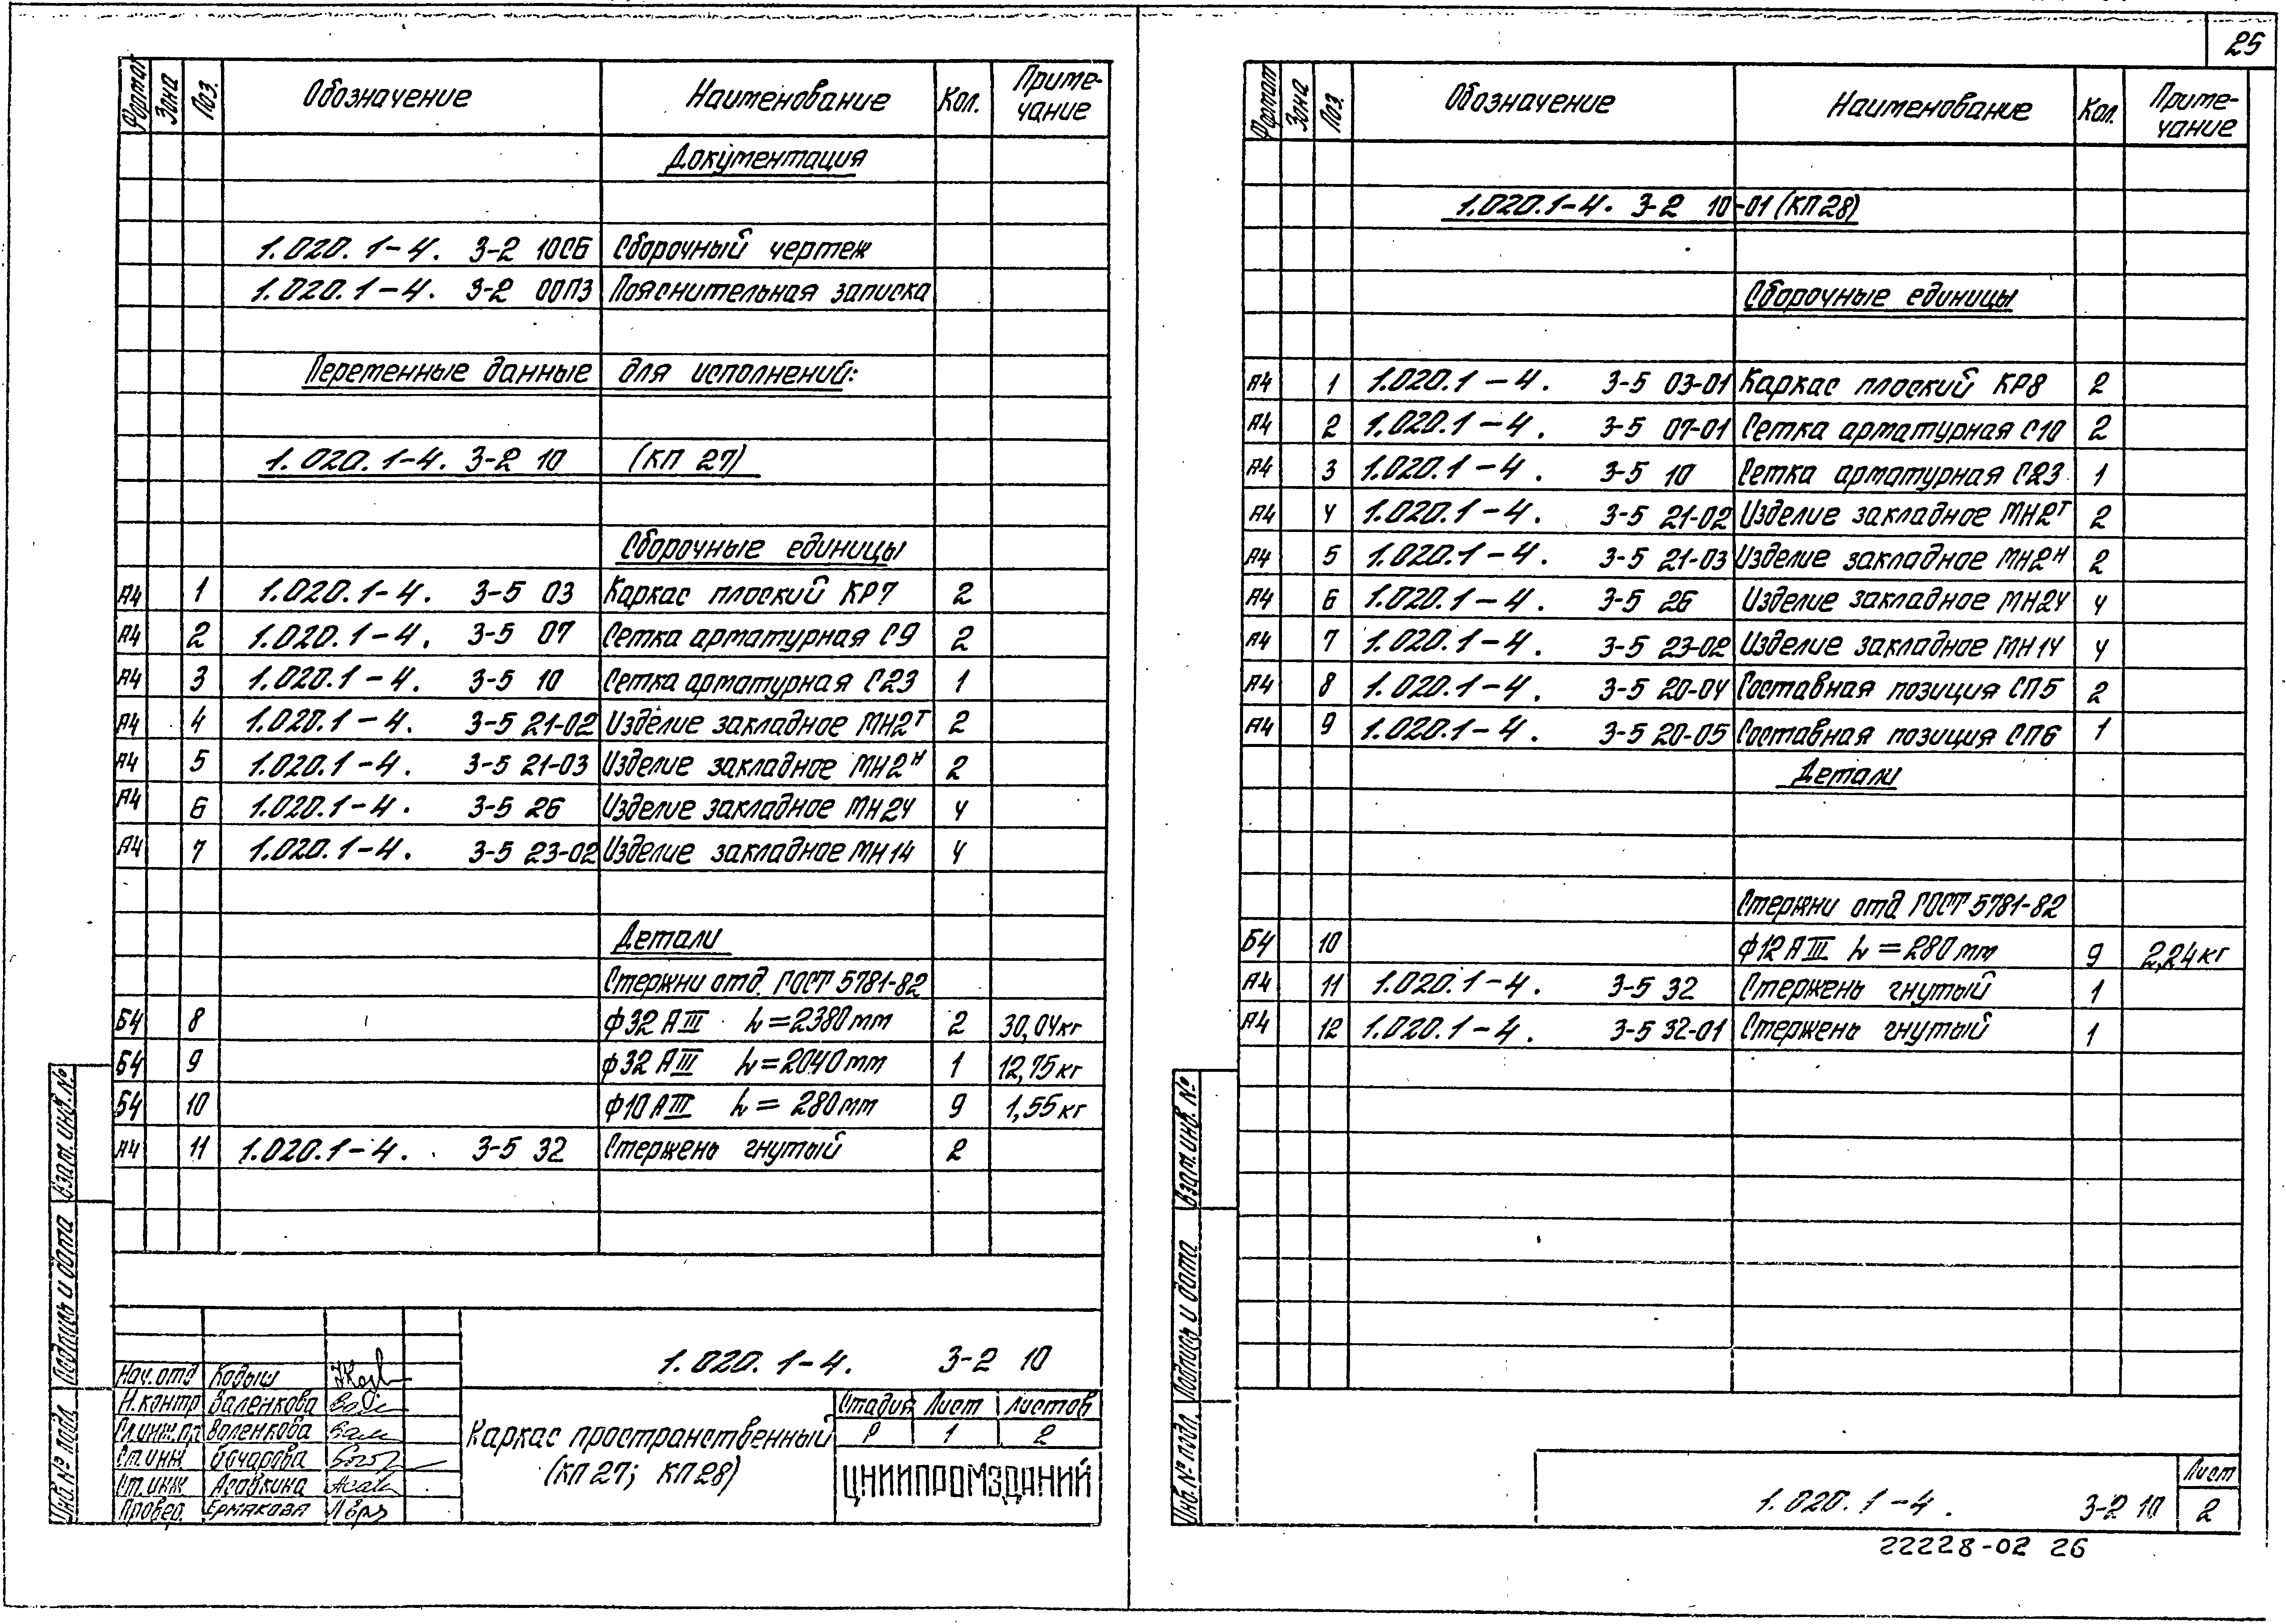 25
Формат Зона Поз. Обозначение Наименование Кол. Приме-
чание
Документация
1.020.1-4. 3-2 10СБ Сборочный чертеж
1.020.1-4. 3-2 00ПЗ Пояснительная записка
Переменные данные для исполнений:
1.020.1-4. 3-2 10 (КП 27)
Сборочные единицы
А4 1 1.020.1-4. 3-5 03 Каркас плоский КР7 2
А4 2 1.020.1-4. 3-5 07 Сетка арматурная С9 2
А4 3 1.020.1-4. 3-5 10 Сетка арматурная С23 1
А4 4 1.020.1-4. 3-5 21-02 Изделие закладное МН2Т 2
А4 5 1.020.1-4. 3-5 21-03 Изделие закладное МН2Н 2
А4 6 1.020.1-4. 3-5 26 Изделие закладное МН24 4
А4 7 1.020.1-4. 3-5 23-02 Изделие закладное МН14 4
Детали
Стержни отд. ГОСТ 5781-82
Б4 8 ф32АIII L=2380мм 2 30,04кг
Б4 9 ф32АIII L=2040мм 1 12,75кг
Б4 10 ф10АIII L= 280мм 9 1,55кг
А4 11 1.020.1-4. 3-5 32 Стержень гнутый 2
Инв. № подл. Подпись и дата Взам. инв. №
1.020.1-4. 3-2 10
Нач. отд Кодыш
Н. контр Валенкова
Гл.инж.пр Валенкова
Ст.инж Бочарова
Ст.инж Асавкина
Провер. Ермакова
Каркас пространственный
(КП27; КП28)
Стадия Лист Листов
Р 1 2
ЦНИИПРОМЗДАНИЙ
Формат Зона Поз. Обозначение Наименование Кол. Приме-
чание
1.020.1-4. 3-2 10-01 (КП28)
Сборочные единицы
А4 1 1.020.1-4. 3-5 03-01 Каркас плоский КР8 2
А4 2 1.020.1-4. 3-5 07-01 Сетка арматурная С10 2
А4 3 1.020.1-4. 3-5 10 Сетка арматурная С23 1
А4 4 1.020.1-4. 3-5 21-02 Изделие закладное МН2Т 2
А4 5 1.020.1-4. 3-5 21-03 Изделие закладное МН2Н 2
А4 6 1.020.1-4. 3-5 26 Изделие закладное МН24 4
А4 7 1.020.1-4. 3-5 23-02 Изделие закладное МН14 4
А4 8 1.020.1-4. 3-5 20-04 Составная позиция СП5 2
А4 9 1.020.1-4. 3-5 20-05 Составная позиция СП6 1
Детали
Стержни отд ГОСТ 5781-82
Б4 10 ф12АIII L=280мм 9 2,24кг
А4 11 1.020.1-4. 3-5 32 Стержень гнутый 1
А4 12 1.020.1-4. 3-5 32-01 Стержень гнутый 1
Инв. № подл. Подпись и дата Взам. инв. №
1.020.1-4. 3-2 10
Лист
2
22228-02 26